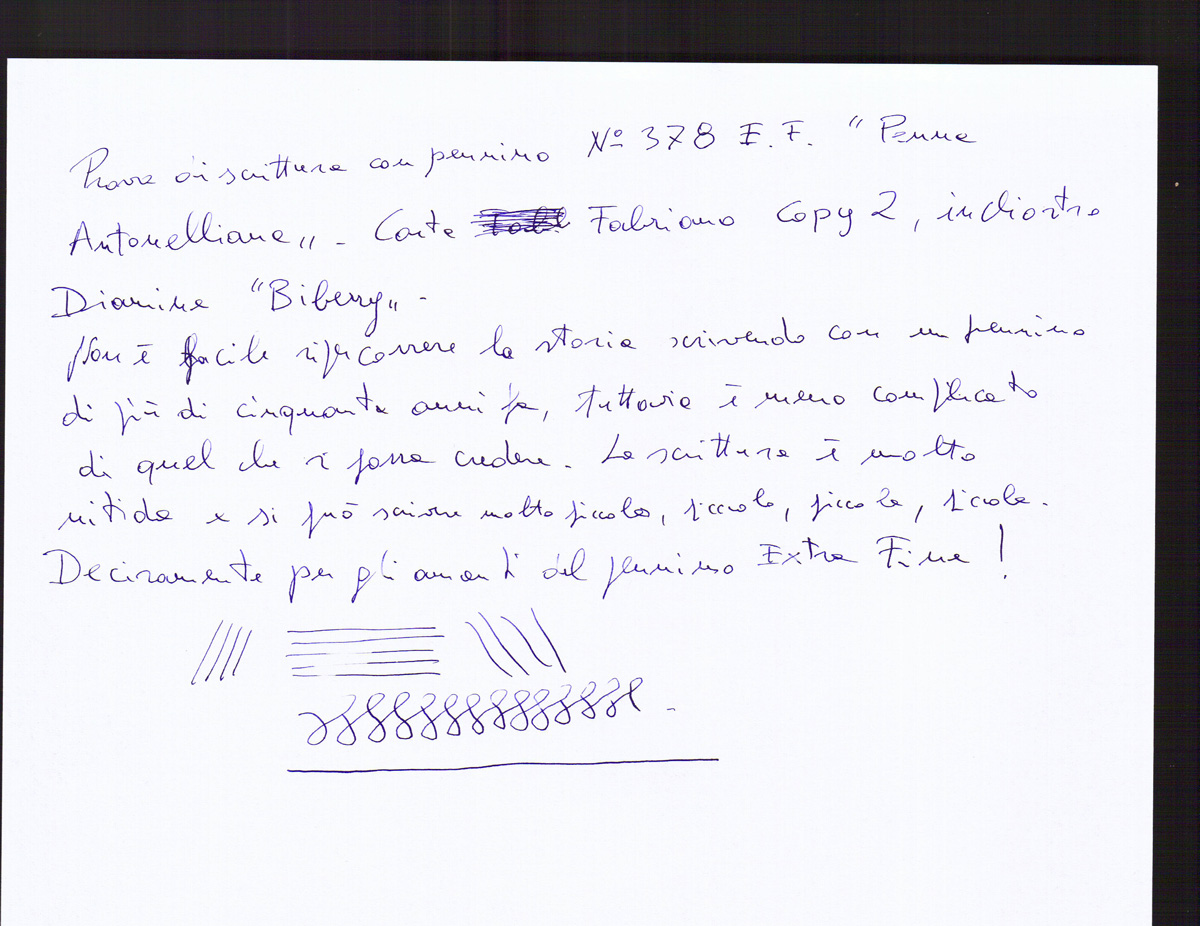 Prova di scrittura con pennino Nº 378 E. F. "Penna
Antonelliana„ - Carta Fabriano Copy 2, inchiostro
Diamine "Biberry„ -
Non è facile ripercorrere la storia scrivendo con un pennino
di più di cinquanta anni fa, tuttavia è meno complicato
di quel che si possa credere. La scrittura è molto
nitida e si può scrivere molto piccolo, piccolo, piccolo, piccolo.
Decisamente per gli amanti del pennino Extra Fine !